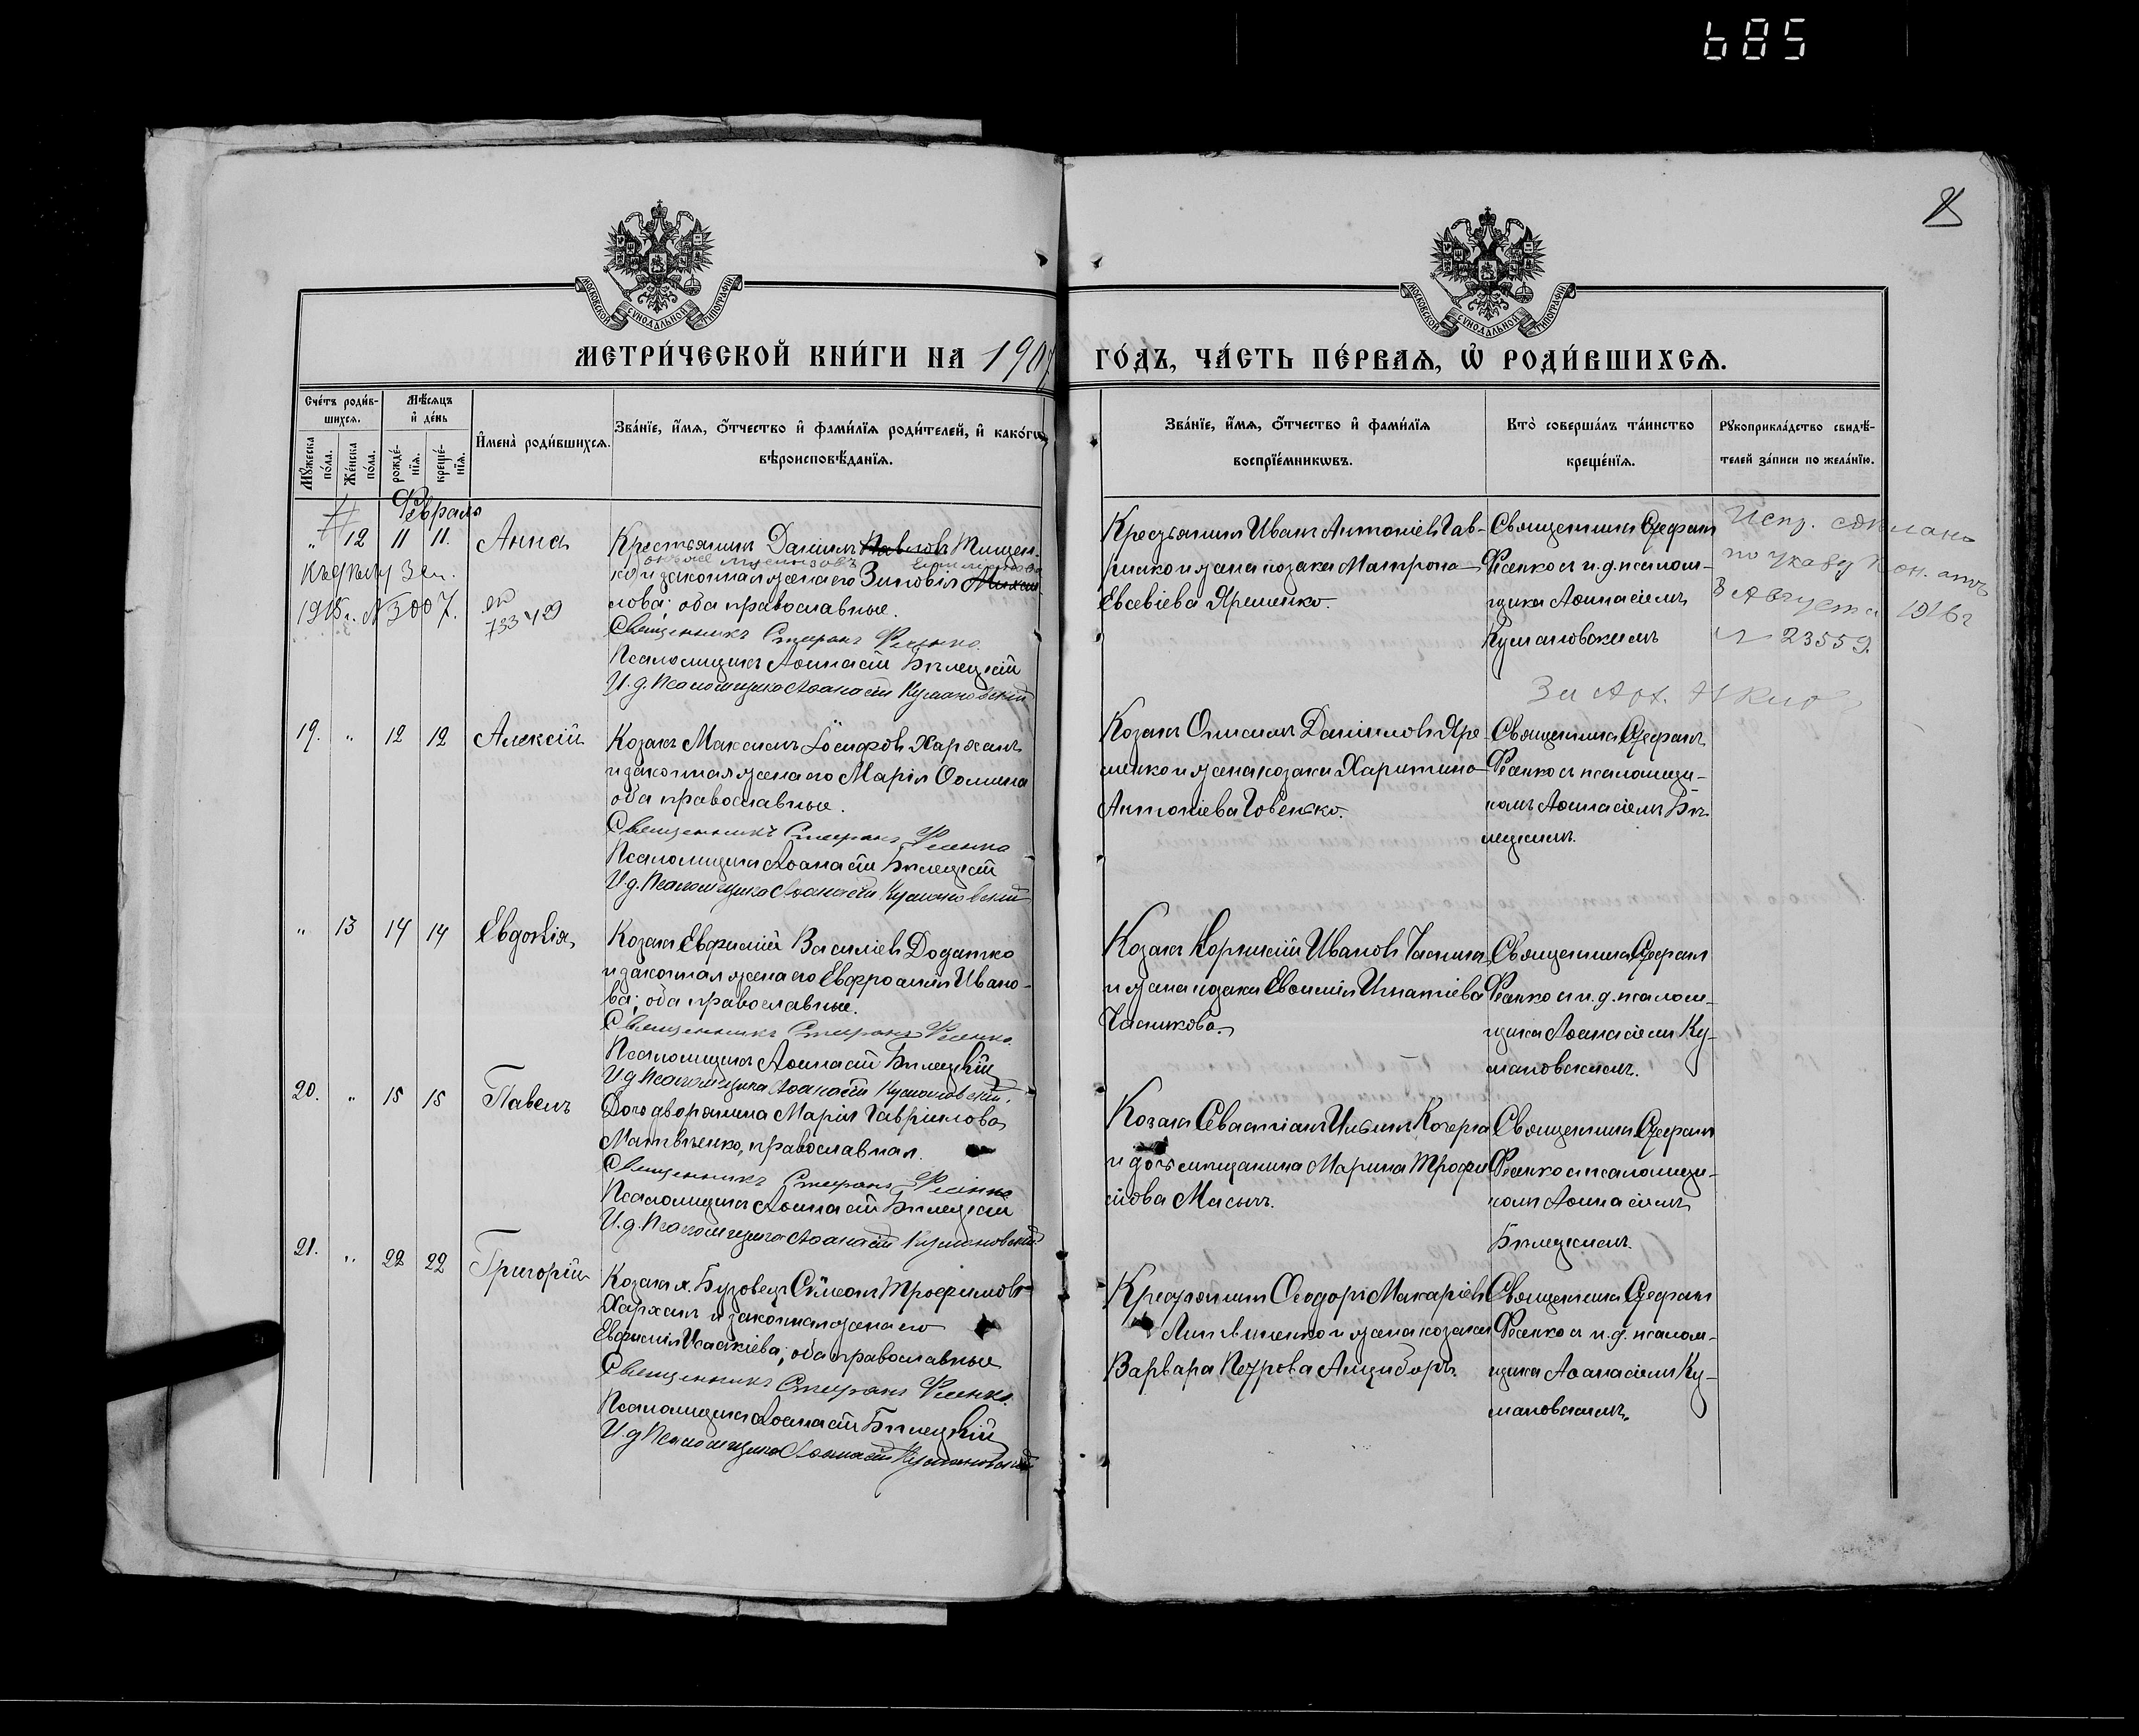 685
8
МОСКОВСКОЙ СѴНОДАЛЬНОЙ ТИПОГРАФІИ
МОСКОВСКОЙ СѴНОДАЛЬНОЙ ТИПОГРАФІИ
МЕТРИ́ЧЕСКОЙ КНИ́ГИ НА 1907
ГО́ДЪ, ЧА́СТЬ ПЕ́РВАѦ, Ѡ҆ РОДИ́ВШИХСѦ.
Сче́тъ роди́в-
шихсѧ.
Мѣ́сѧцъ
и҆ де́нь
Мꙋ́жеска по́ла.
Же́нска по́ла.
рожде́-нїѧ.
креще́-нїѧ.
И҆мена̀ роди́вшихсѧ.
Зва́нїе, и҆́мѧ, ѻ҆́тчество и҆ фами́лїѧ роди́телей, и҆ како́гѡ
вѣроисповѣ́данїѧ.
Зва́нїе, и҆́мѧ, ѻ҆́тчество и҆ фами́лїѧ
воспрїе́мникѡвъ.
Кто̀ соверша́лъ та́инство
креще́нїѧ.
Рꙋкоприкла́дство свидѣ́-
телей за́писи по жела́нїю.
Февраль
" 12 11 11. Анна
Крестьянинъ Даніилъ Павловъ Тищен-
ко и законная жена его Зиновія
лова; оба православные.
Священникъ Стефанъ Фесенко.
Псаломщикъ Аѳанасій Бѣлецкій
И. д. Псаломщика Аѳанасій Кумановскій
1915 г. № 3007.
733
Крестьянинъ Иванъ Антоніевъ Гав-
рилко и жена козака Матрона
Евсевіева Яременко.
Священникъ Стефанъ
Фесенко съ и. д. псалом-
щика Аѳанасіемъ
Кумановскимъ
Испр. сдѣлано
по указу Кон. отъ
3 Августа 1916 г
№ 23559.
За Арх.
19. " 12 12 Алексій
Козакъ Максимъ Іосифовъ Харханъ
и законная жена его Марія Ѳомина
оба православные.
Священникъ Стефанъ Фесенко
Псаломщикъ Аѳанасій Бѣлецкій
И. д. Псаломщика Аѳанасій Кумановскій
Козакъ Онисимъ Данииловъ Яре-
менко и жена козака Харитина
Антоніева Говенко.
Священникъ Стефанъ
Фесенко съ псаломщи-
комъ Аѳанасіемъ Бѣ-
лецкимъ.
" 13 14 14 Евдокія
Козакъ Евфимій Василіевъ Додатко
и законная жена его Евфросинія Ивано-
ва; оба православные.
Священникъ Стефанъ Фесенко.
Псаломщикъ Аѳанасій Бѣлецкій
И. д. Псаломщика Аѳанасій Кумановскій.
Козакъ Корнилій Ивановъ
и жена козака Евѳимія Игнатіева
Священникъ Стефанъ
Фесенко съ и. д. псалом-
щика Аѳанасіемъ Ку-
мановскимъ.
20. " 15 15 Павелъ
Дочь дворянина Марія Гавріилова
Матвѣенко, православная.
Священникъ Стефанъ Фесенко
Псаломщикъ Аѳанасій Бѣлецкій
И. д. Псаломщика Аѳанасій Кумановскій
Козакъ Севастіанъ Ильинъ Кочерга
и дочь мѣщанина Марина Трофи-
мова Масычъ.
Священникъ Стефанъ
Фесенко съ псаломщи-
комъ Аѳанасіемъ
Бѣлецкимъ.
21. " 22 22 Григорій
Козакъ х. Бузовецъ Симеонъ Трофимовъ
Харханъ и законная жена его
Евфимія Исаакіева; оба православные
Священникъ Стефанъ Фесенко.
Псаломщикъ Аѳанасій Бѣлецкій
И. д. Псаломщика Аѳанасій Кумановскій
Крестьянинъ Ѳеодоръ Макаріевъ
Литвиненко и жена козака
Варвара Петрова Анцыборъ.
Священникъ Стефанъ
Фесенко съ и. д. псалом-
щика Аѳанасіемъ Ку-
мановскимъ.